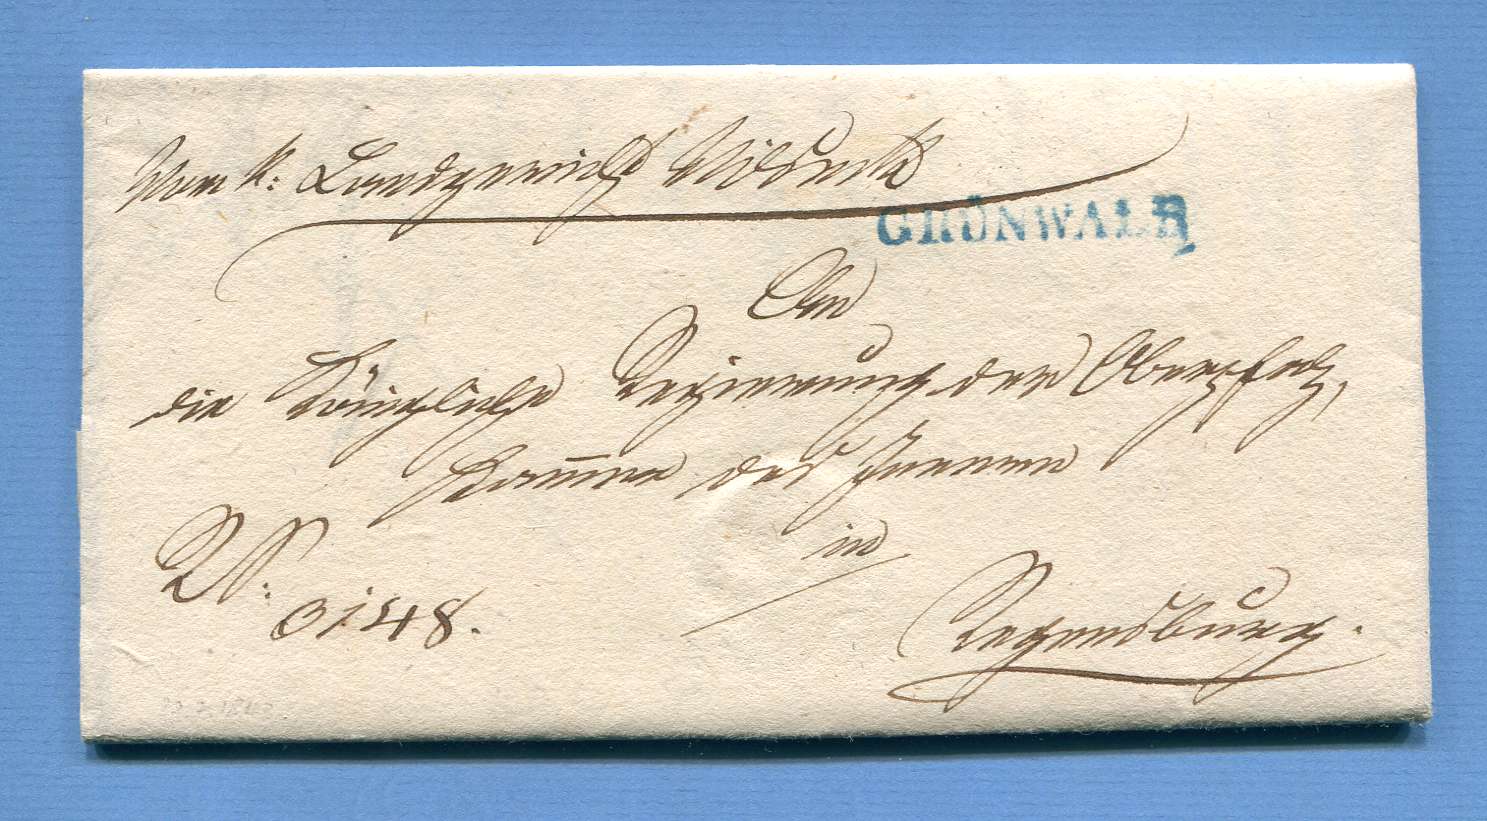 Vom k: Landgericht Vilseck
GRÜNWALD
An
die Königliche Regierung der Oberpfalz,
Kam̅er des Innern
in
Regensburg.
R.S.
3148.